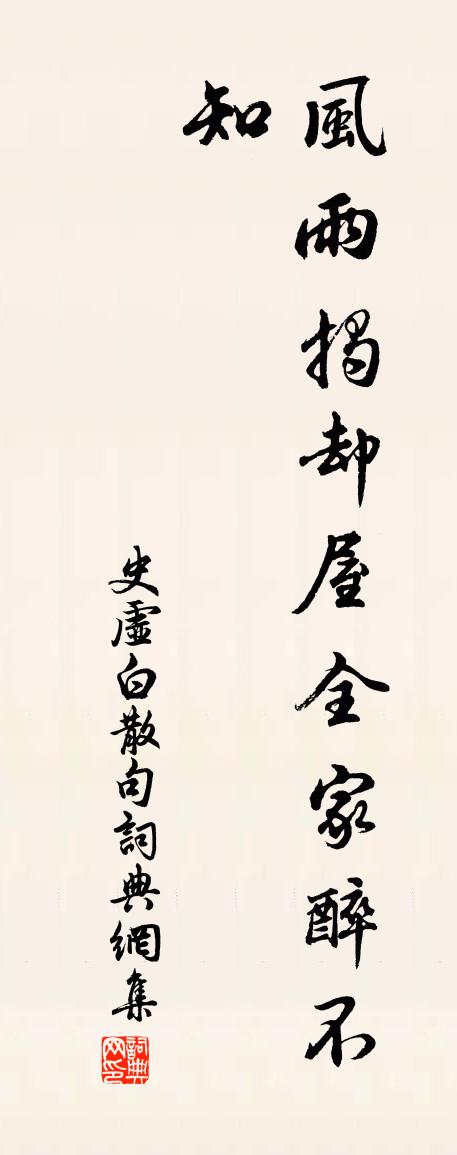 風雨揭却屋全家醉不
知
史虛白散句詞典網集
詞典
网印